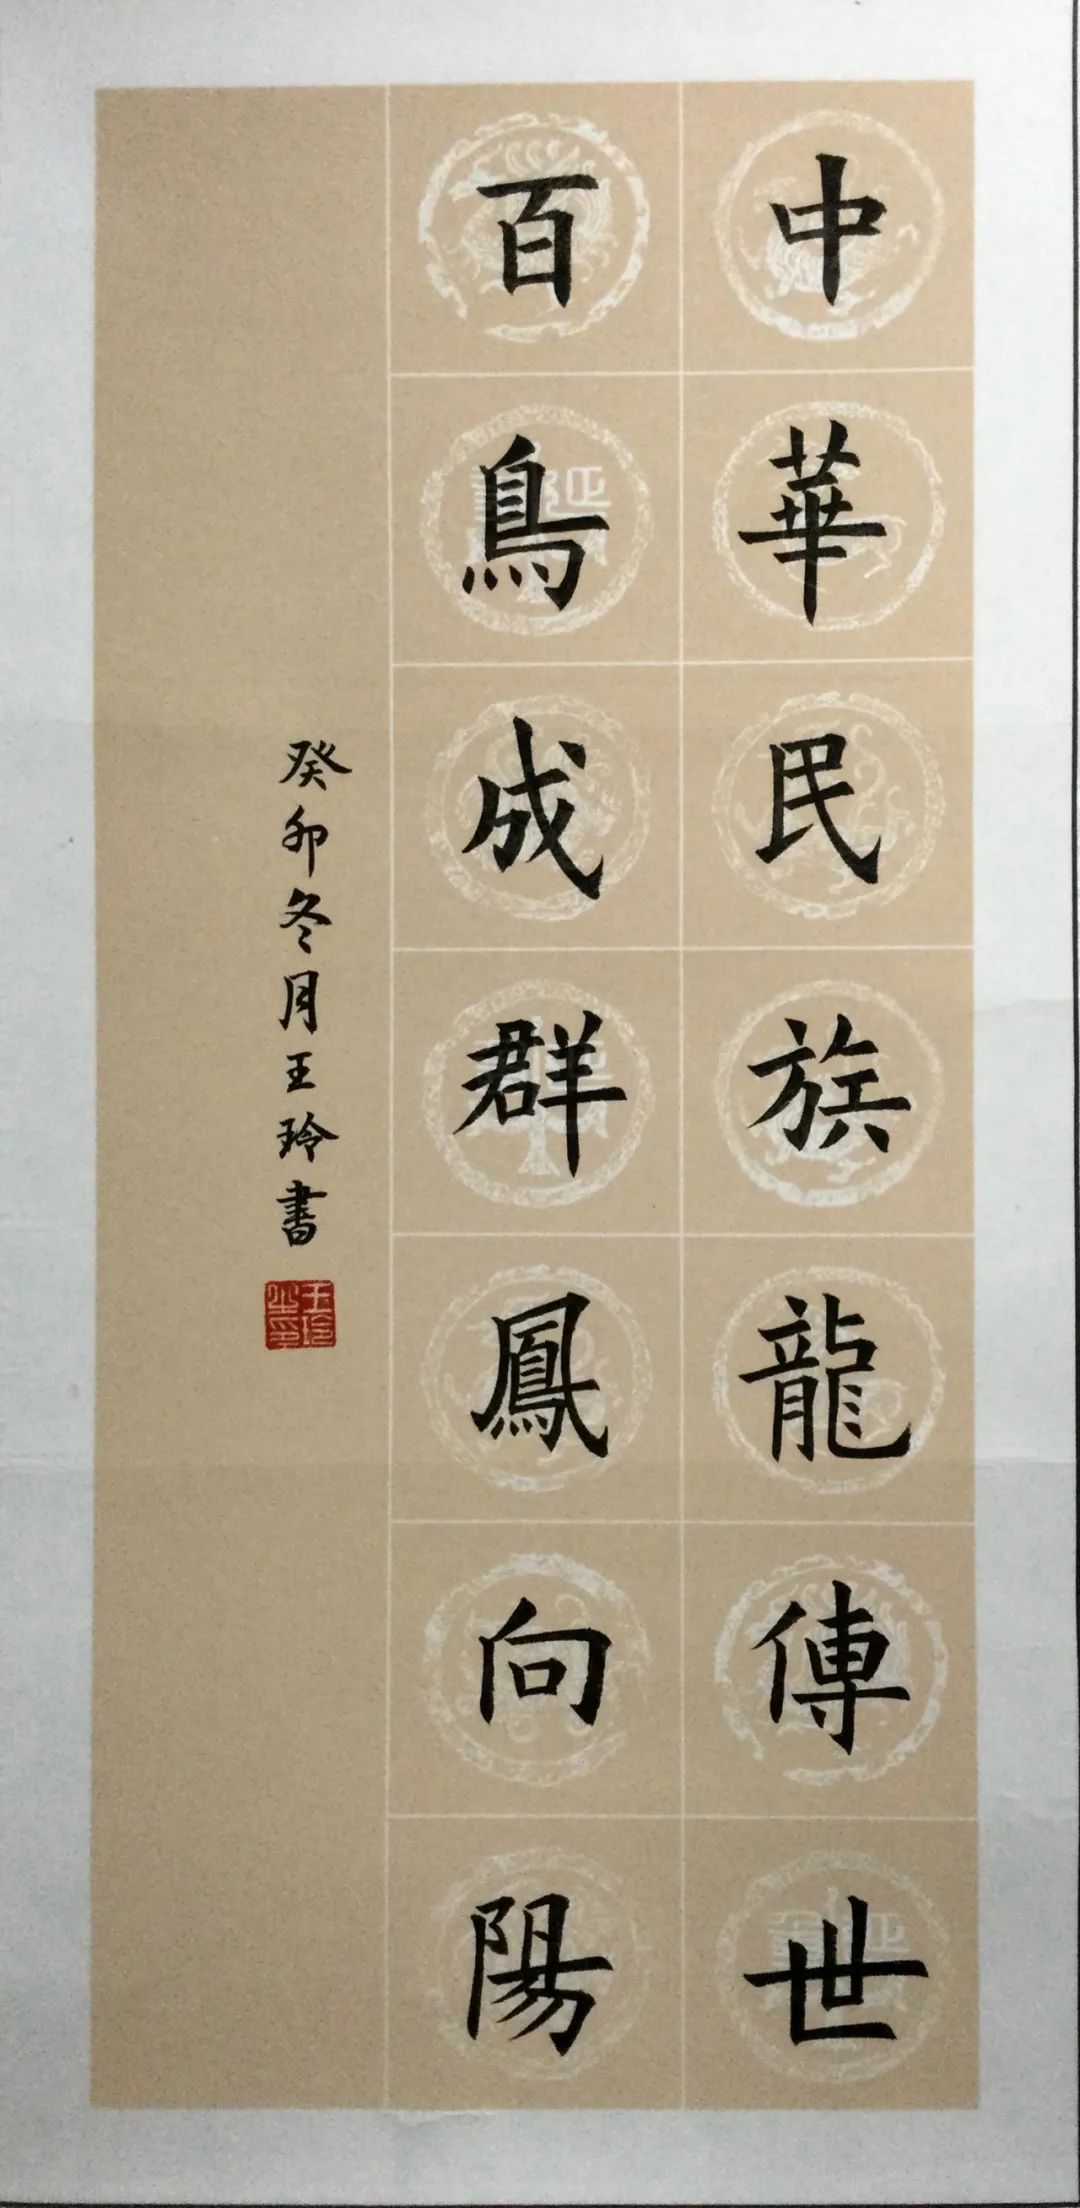 中華民族龍傳世
百鳥成群鳳向陽
癸卯冬月王玲書
王玲之印